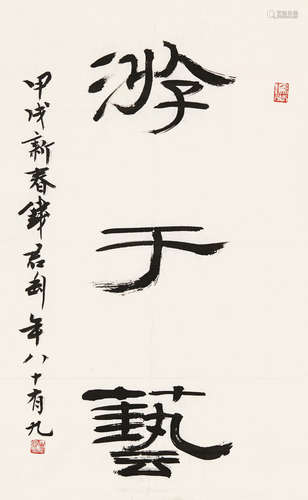 游于藝
甲戌新春錢君匋年八十有九